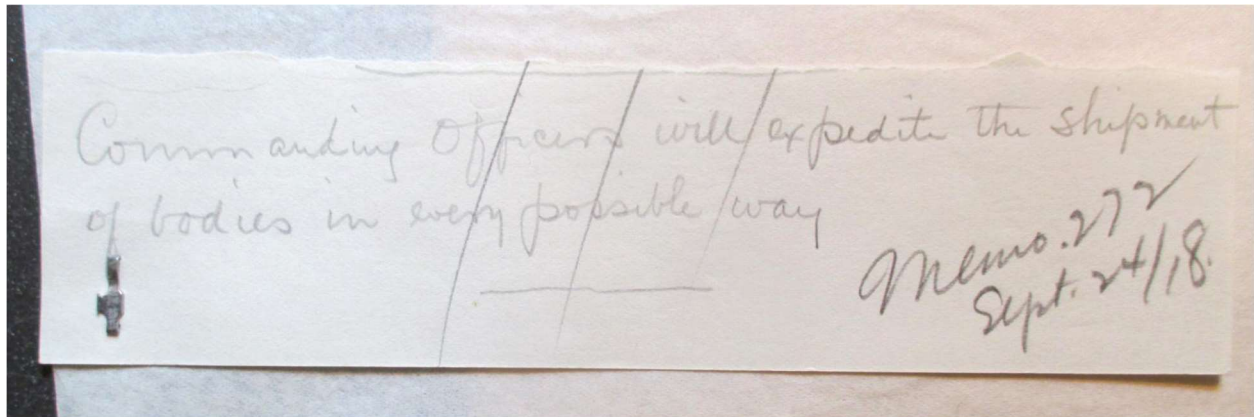 Commanding Officers will expedite the shipment
of bodies in every possible way
Memo. 272
Sept. 24/18.